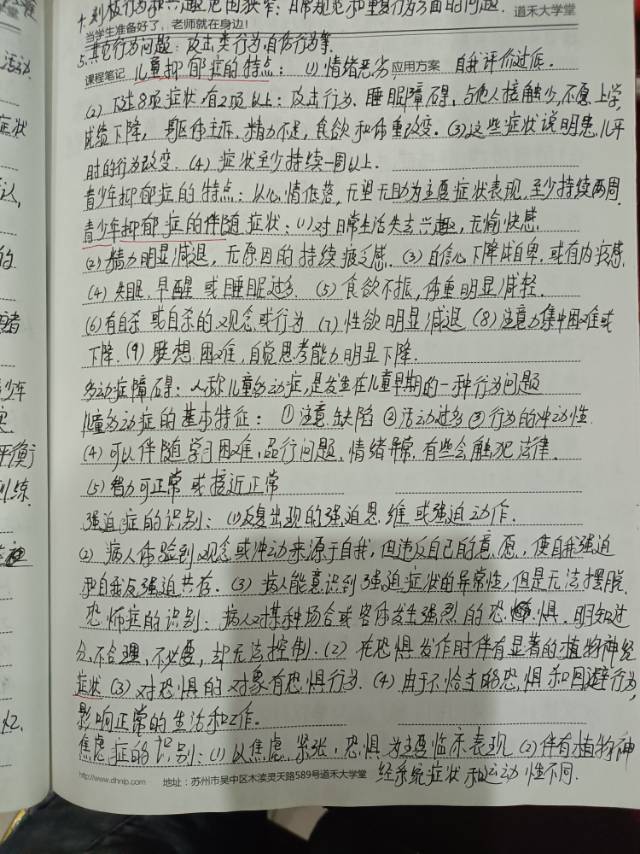 4.刻板行为和兴趣范围狭窄：日常规范和重复行为方面的问题.
道禾大学堂
当学生准备好了，老师就在身边！
5.其它行为问题：攻击类行为.自伤行为等.
课程笔记 儿童抑郁症的特点：(1)情绪恶劣,应用方案 自我评价过低.
(2)下述8项症状有2项以上：攻击行为、睡眠障碍,与他人接触少,不愿上学,
成绩下降, 躯体主诉.精力不足,食欲和体重改变.(3)这些症状说明患儿平
时的行为改变.(4)症状至少持续一周以上.
青少年抑郁症的特点：以心情低落,无望无助为主要症状表现.至少持续两周.
青少年抑郁症的伴随症状：(1)对日常生活失去兴趣,无愉快感.
(2)精力明显减退,无原因的持续疲乏感.(3)自信心下降或自卑.或有内疚感.
(4)失眠.早醒或睡眠过多.(5)食欲不振,体重明显减轻.
(6)有自杀或自杀的观念或行为(7)性欲明显减退(8)注意力集中困难或
下降.(9)联想困难,自觉思考能力明显下降.
多动症障碍：又称儿童多动症,是发生在儿童早期的一种行为问题
儿童多动症的基本特征：①注意缺陷②活动过多③行为的冲动性
(4)可以伴随学习困难,品行问题,情绪异常.有些会触犯法律.
(5)智力可正常或接近正常
强迫症的识别：(1)反复出现的强迫思维或强迫动作.
(2)病人体验到观念或冲动来源于自我,但违反自己的意愿,使自我强迫
和自我反强迫共存.(3)病人能意识到强迫症状的异常性,但是无法摆脱.
恐怖症的识别：病人对某种场合或客体发生强烈的恐惧.明知过
分.不合理,不必要,却无法控制.(2)在恐惧发作时伴有显著的植物神经
症状(3)对恐惧的对象有恐惧行为.(4)由于不恰当的恐惧和回避行为,
影响正常的生活和工作.
焦虑症的识别：(1)以焦虑.紧张,恐惧为主要临床表现(2)伴有植物神
经系统症状和运动性不同.
http://www.dhnlp.com 地址：苏州市吴中区木渎灵天路589号道禾大学堂